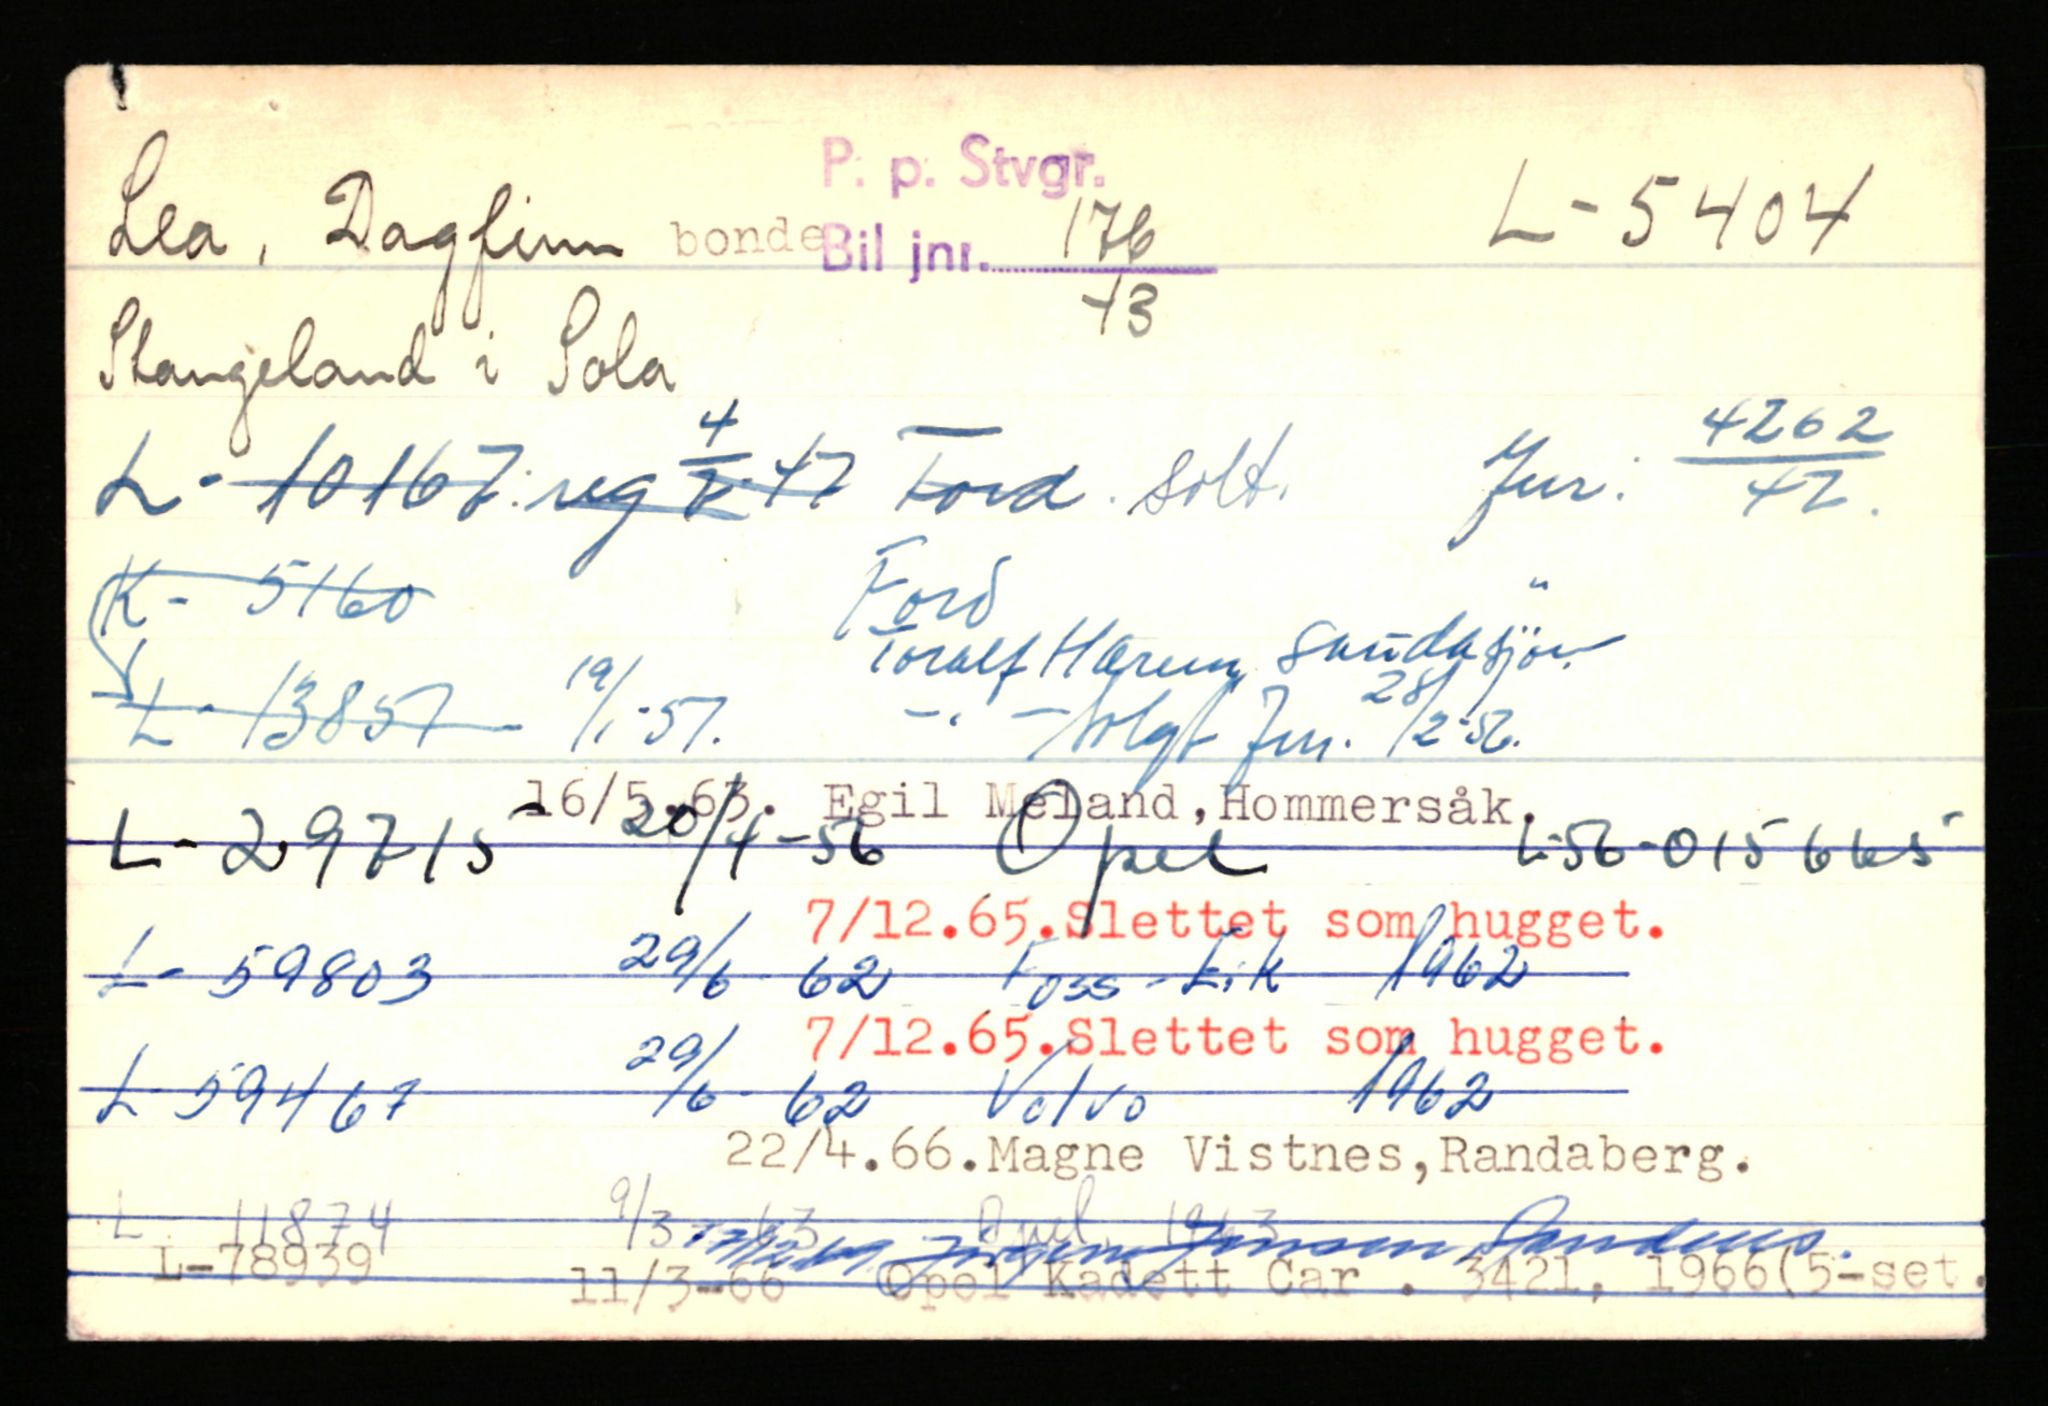 P. p. Stvgr.
Lea, Dagfinn bonde Bil jnr. 176 L-5404
43
Stangeland i Sola
L-10167. reg 4/2-47 Ford. solt. Jnr: 4262
47.
K-5160 Ford
Toralf Hærem, Saudasjön
L-13857 19/1-51. -"- solgt Jnr. 28/2-56.
16/5.63. Egil Meland,Hommersåk.
L-29715 20/4-56 Opel L-56-015665
7/12.65.Slettet som hugget.
L-59803 29/6-62 Foss-Eik 1962
7/12.65.Slettet som hugget.
L-59467 29/6-62 Volvo 1962
22/4.66.Magne Vistnes,Randaberg.
L 11874 9/3 63 Opel 1963
Jonsson, Sandnes.
L-78939 11/3-66 Opel Kadett Car . 3421, 1966(5-set.